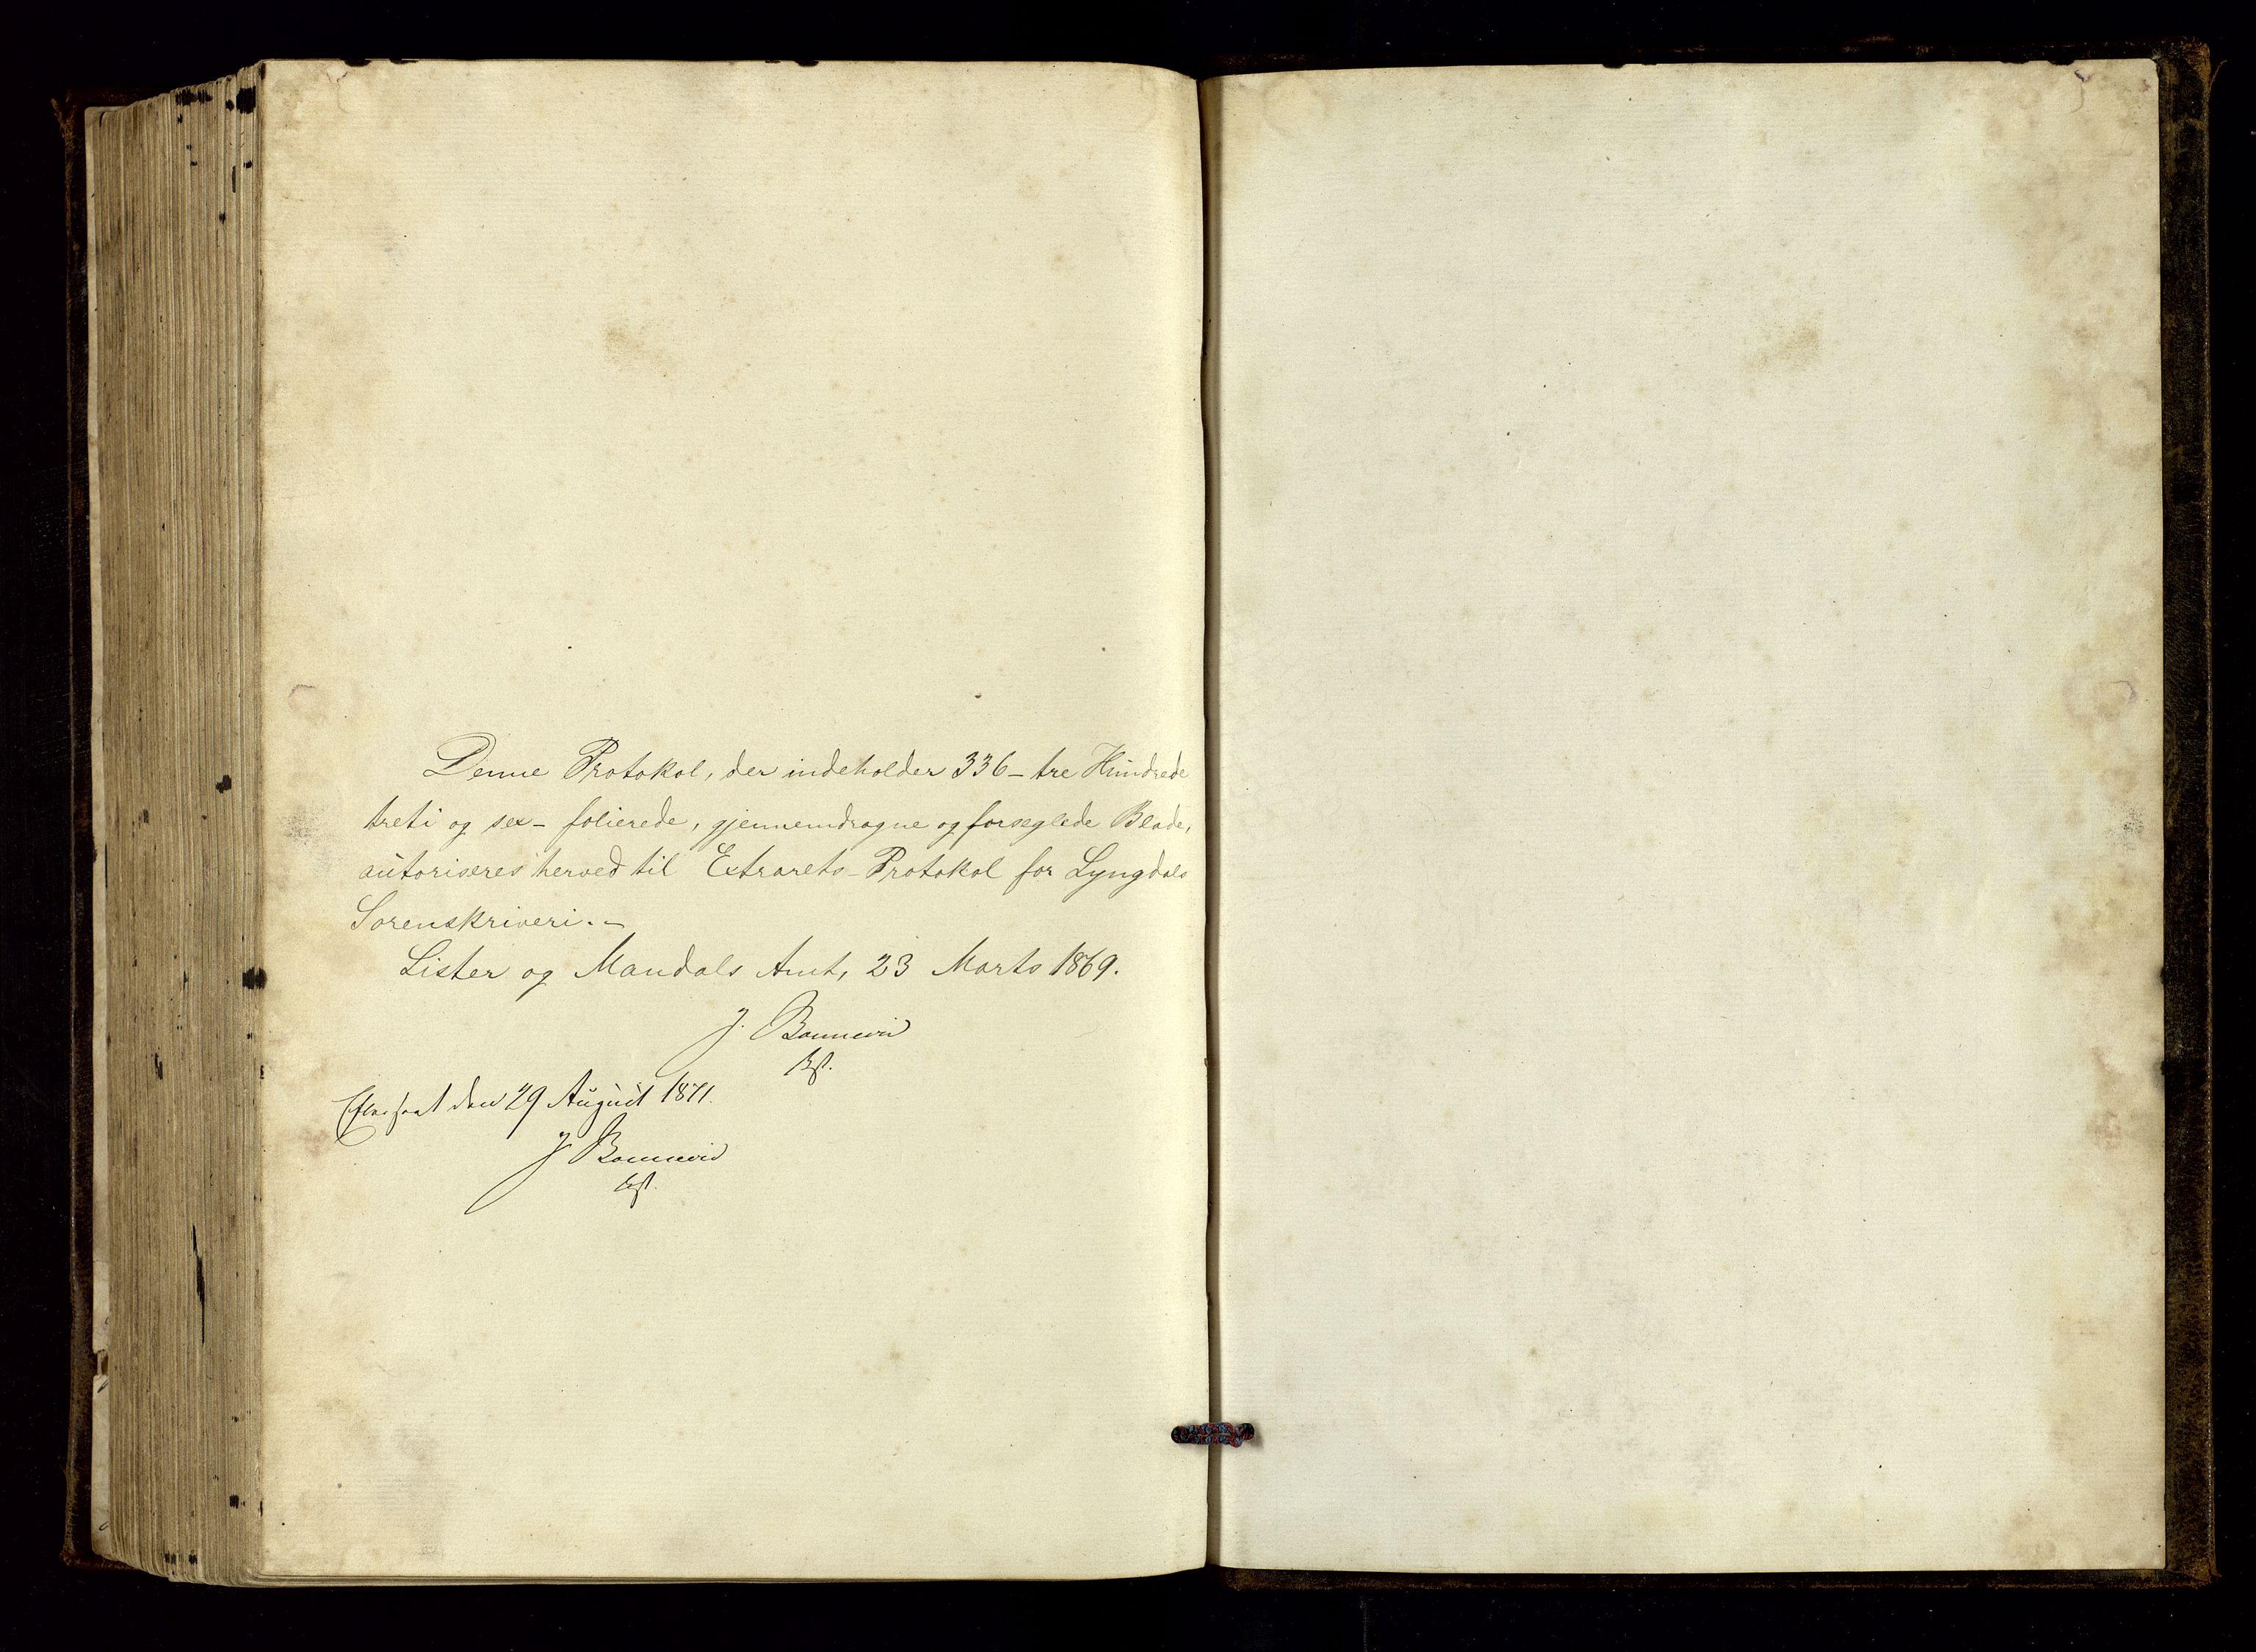 Denne Protokol, der indeholder 336 - tre Hundrede
treti og sex - folierede, gjennemdragne og forseglede Blade,
autoriseres herved til Extrarets-Protokol for Lyngdals
Sorenskriveri. -
Lister og Mandals Amt, 23 Marts 1869.
J. Bonnevie
kst.
Efterseet den 29 August 1871.
J Bonnevie
kst.